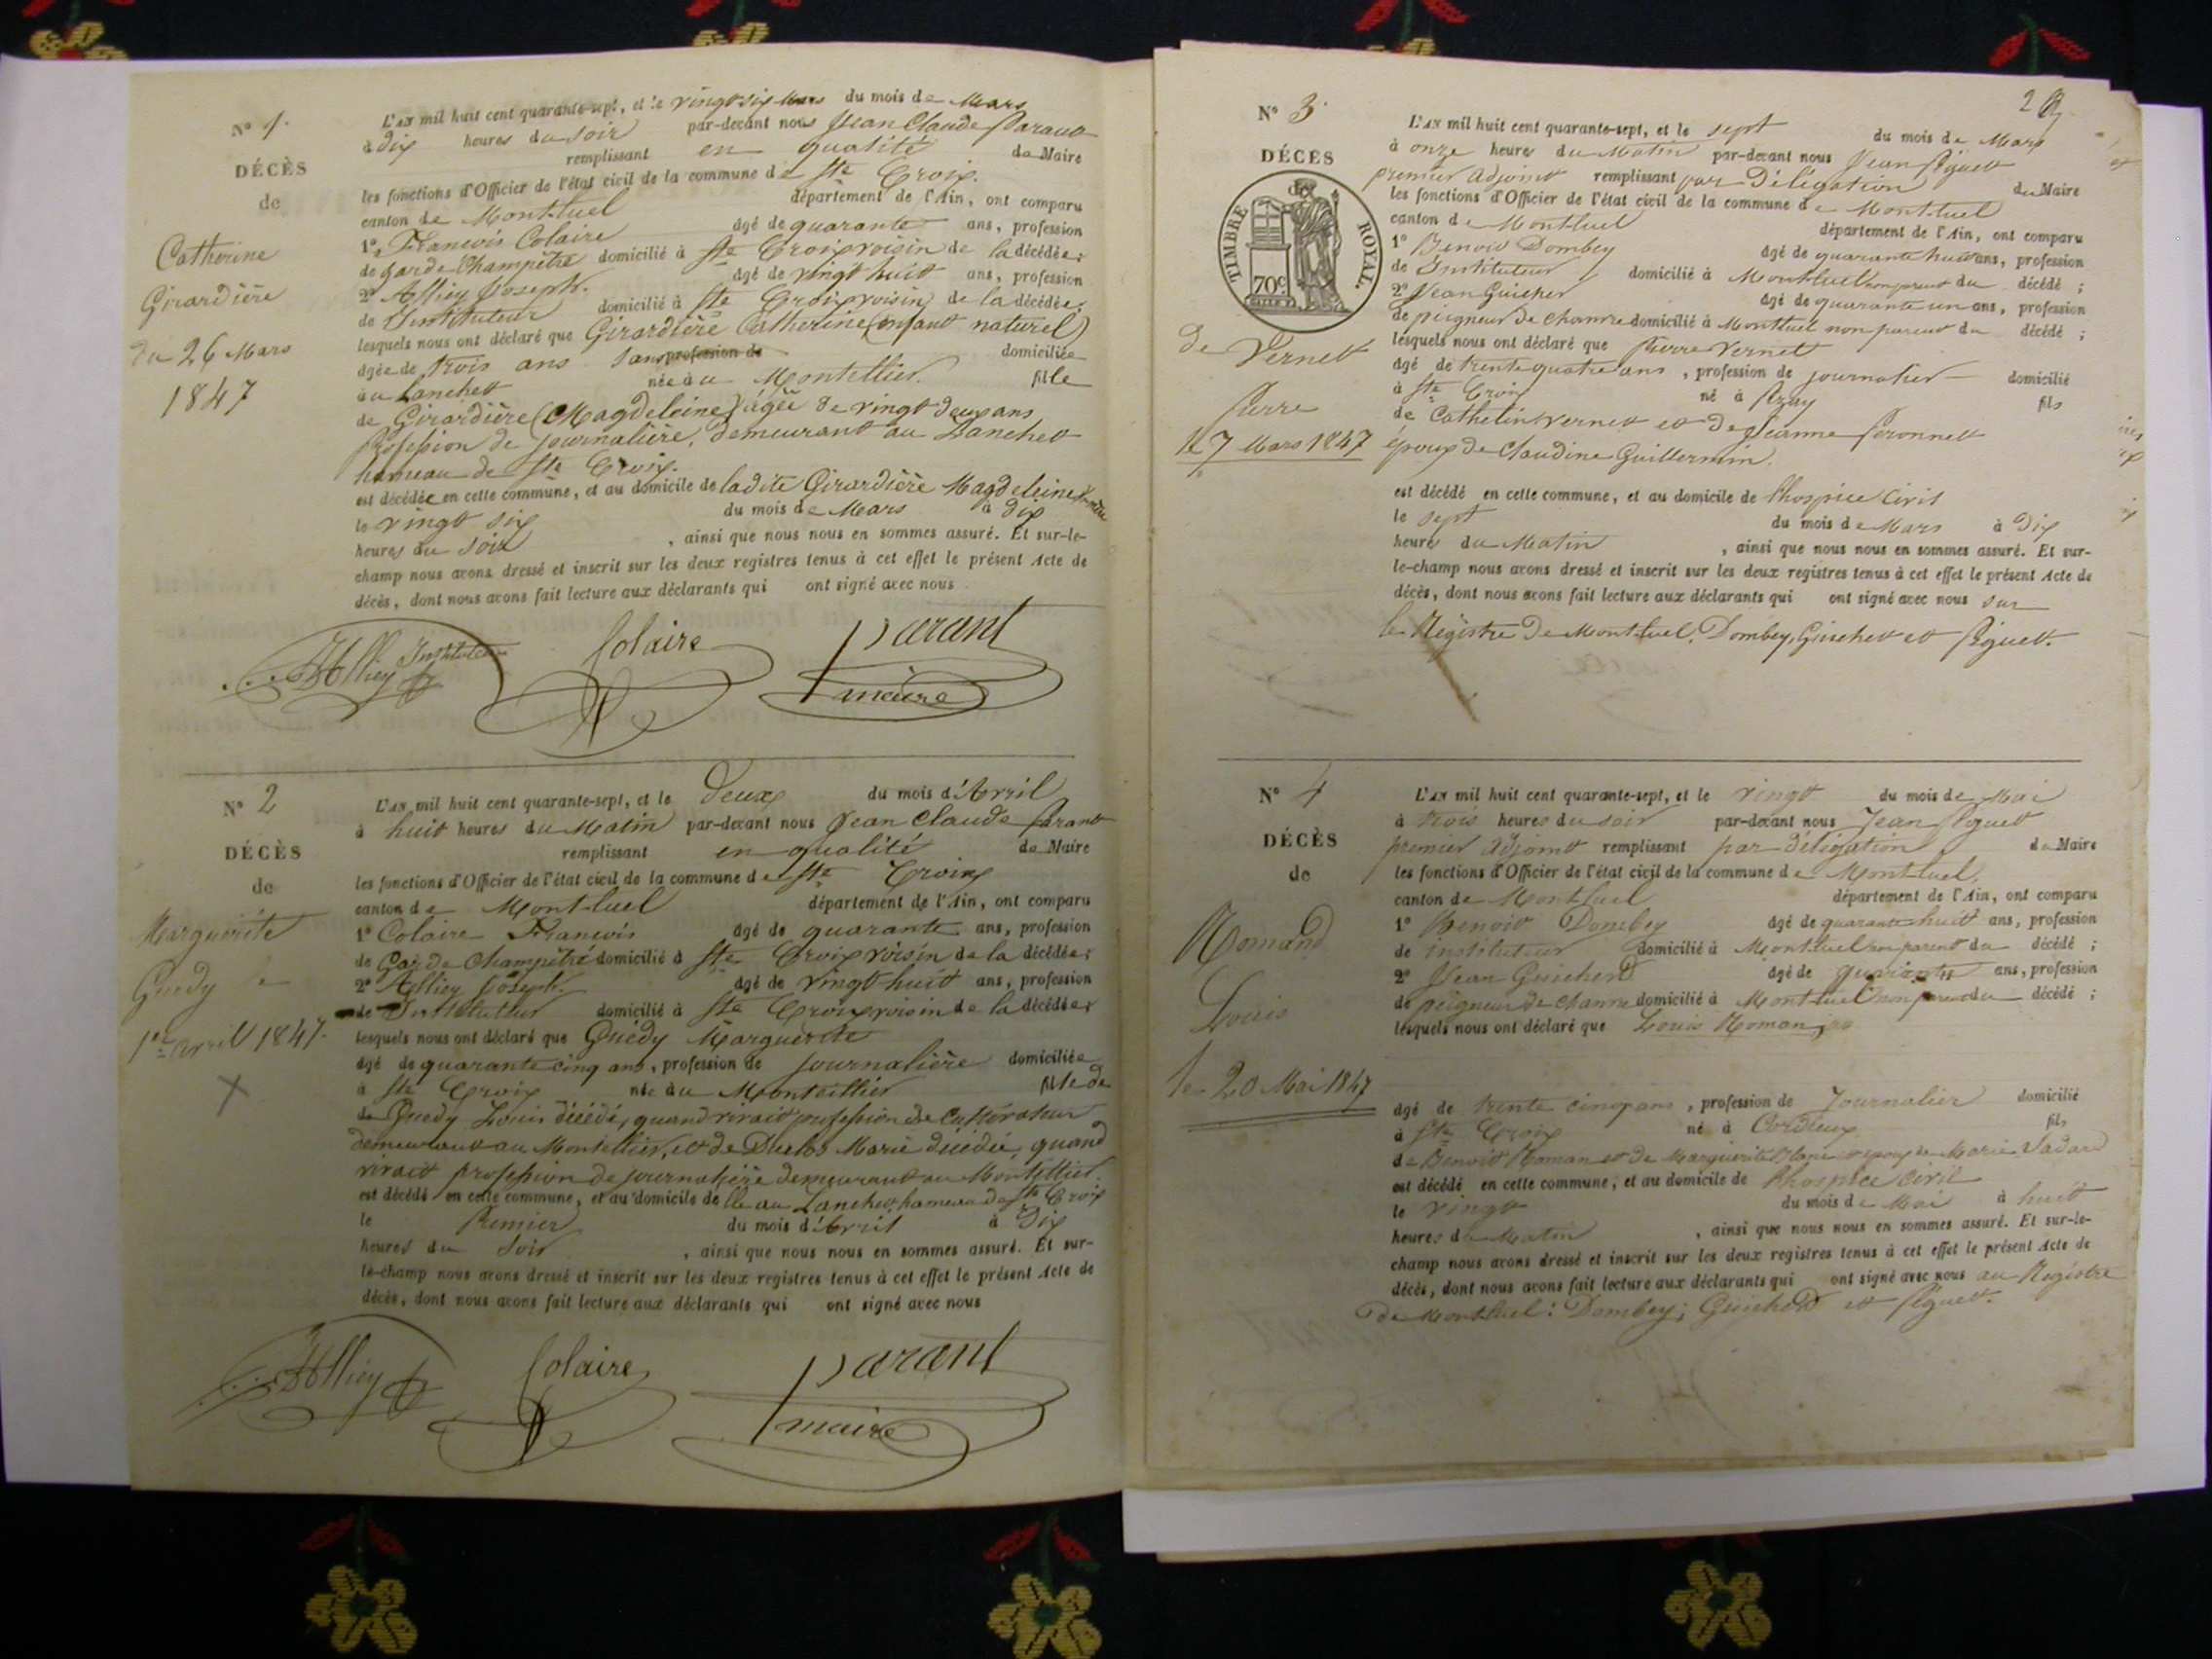 N° 1.
DÉCÈS
de
Catherine
Girardière
du 26 Mars
1847
L'AN mil huit cent quarante-sept, et le vingt six Mars du mois de Mars
à dix heures du soir par-devant nous Jean Claude Parant
remplissant en qualité de Maire
les fonctions d'Officier de l'état civil de la commune de Ste Croix.
canton de Montluel département de l'Ain, ont comparu
1° Francois Colaire âgé de quarante ans, profession
de garde Champêtre domicilié à Ste Croix voisin de la décédée;
2° Alliey Joseph. âgé de vingt huit ans, profession
de Instituteur domicilié à Ste Croix voisin de la décédée;
lesquels nous ont déclaré que Girardière Catherine (enfant naturel)
âgée de trois ans sans profession de domiciliée
au Lanchet née au Montellier. fille
de Girardière (Magdeleine) âgée de vingt deux ans
Profession de journalière, demeurant au Lanchet
hameau de Ste Croix.
est décédée en cette commune, et au domicile de ladite Girardière Magdeleine
le vingt six du mois de Mars à dix
heures du soir , ainsi que nous nous en sommes assuré. Et sur-le-
champ nous avons dressé et inscrit sur les deux registres tenus à cet effet le présent Acte de
décès, dont nous avons fait lecture aux déclarants qui ont signé avec nous
Alliey Instituteur Colaire Parant
maire
N° 2
DÉCÈS
de
Marguerite
Guedy le
1er avril 1847.
L'AN mil huit cent quarante-sept, et le deux du mois d'Avril
à huit heures du Matin par-devant nous Jean Claude Parant
remplissant en qualité de Maire
les fonctions d'Officier de l'état civil de la commune de Ste Croix
canton de Montluel département de l'Ain, ont comparu
1° Colaire Francois âgé de quarante ans, profession
de Garde Champêtre domicilié à Ste Croix voisin de la décédée;
2° Alliey Joseph. âgé de vingt huit ans, profession
de Instituteur domicilié à Ste Croix voisin de la décédée;
lesquels nous ont déclaré que Guédy Marguerite
âgé de quarante cinq ans, profession de journalière domiciliée
à Ste Croix née au Montellier fille de
de Guedy Louis décédé, quand vivait profession de Cultivateur
demeurant au Montellier, et de Duclos Marie décédée, quand
vivait profession de journalière demeurant au Montellier.
est décédé en cette commune, et au domicile de elle au Lanchet, hameau de Ste Croix
le Premier du mois d'Avril à dix
heures du soir , ainsi que nous nous en sommes assuré. Et sur-
le-champ nous avons dressé et inscrit sur les deux registres tenus à cet effet le présent Acte de
décès, dont nous avons fait lecture aux déclarants qui ont signé avec nous
Alliey Colaire Parant
maire
N° 3.
DÉCÈS
de
TIMBRE ROYAL.
70c
Vernet
Pierre
le 7 Mars 1847
L'AN mil huit cent quarante-sept, et le sept du mois de Mars
à onze heures du Matin par-devant nous Jean Piguet
premier Adjoint remplissant par Délégation du Maire
les fonctions d'Officier de l'état civil de la commune de Montluel
canton de Montluel département de l'Ain, ont comparu
1° Benoit Dombey âgé de quarante huit ans, profession
de Instituteur domicilié à Montluel non parent du décédé;
2° Jean Guichet âgé de quarante un ans, profession
de peigneur de chanvre domicilié à Montluel non parent du décédé;
lesquels nous ont déclaré que Pierre Vernet
âgé de trente quatre ans, profession de journalier domicilié
à Ste Croix né à fils
de Cathelin Vernet et de Jeanne Peronnet
époux de Claudine Guillermin.
est décédé en cette commune, et au domicile de l'hospice Civil
le sept du mois de Mars à dix
heures du Matin , ainsi que nous nous en sommes assuré. Et sur-
le-champ nous avons dressé et inscrit sur les deux registres tenus à cet effet le présent Acte de
décès, dont nous avons fait lecture aux déclarants qui ont signé avec nous sur
le Régistre de Montluel, Dombey, Guichet et Piguet.
N° 4
DÉCÈS
de
Romand
Louis
le 20 Mai 1847
L'AN mil huit cent quarante-sept, et le vingt du mois de Mai
à trois heures du soir par-devant nous Jean Piguet
premier Adjoint remplissant par délégation du Maire
les fonctions d'Officier de l'état civil de la commune de Montluel.
canton de Montluel département de l'Ain, ont comparu
1° Benoit Dombey âgé de quarante huit ans, profession
de instituteur domicilié à Montluel non parent du décédé;
2° Jean Guicherd âgé de quarante ans, profession
de peigneur de chanvre domicilié à Montluel non parent du décédé;
lesquels nous ont déclaré que Louis Roman
âgé de trente cinq ans, profession de Journalier domicilié
à Ste Croix né à Cordieux fils
de Benoit Roman et de Marguerite époux de Marie
est décédé en cette commune, et au domicile de l'hospice Civil
le vingt du mois de Mai à huit
heures du Matin , ainsi que nous nous en sommes assuré. Et sur-le-
champ nous avons dressé et inscrit sur les deux registres tenus à cet effet le présent Acte de
décès, dont nous avons fait lecture aux déclarants qui ont signé avec nous au Régistre
de Montluel: Dombey; Guicherd et Piguet.